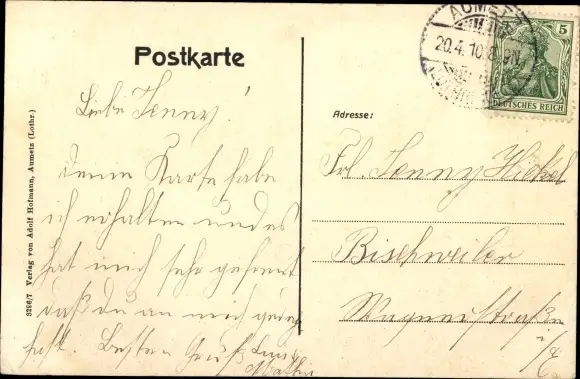 Postkarte
Liebe Jenny!
deine Karte habe
ich erhalten und es
hat mich sehr gefreut
daß du an mich gedacht
hast. Besten Gruß
3296/7 Verlag von Adolf Hofmann, Aumetz (Lothr.)
AUMETZ
20.4.10.8
5
DEUTSCHES REICH
Adresse:
Frl. Jenny Hickel
Bischweiler
Wagnerstraße